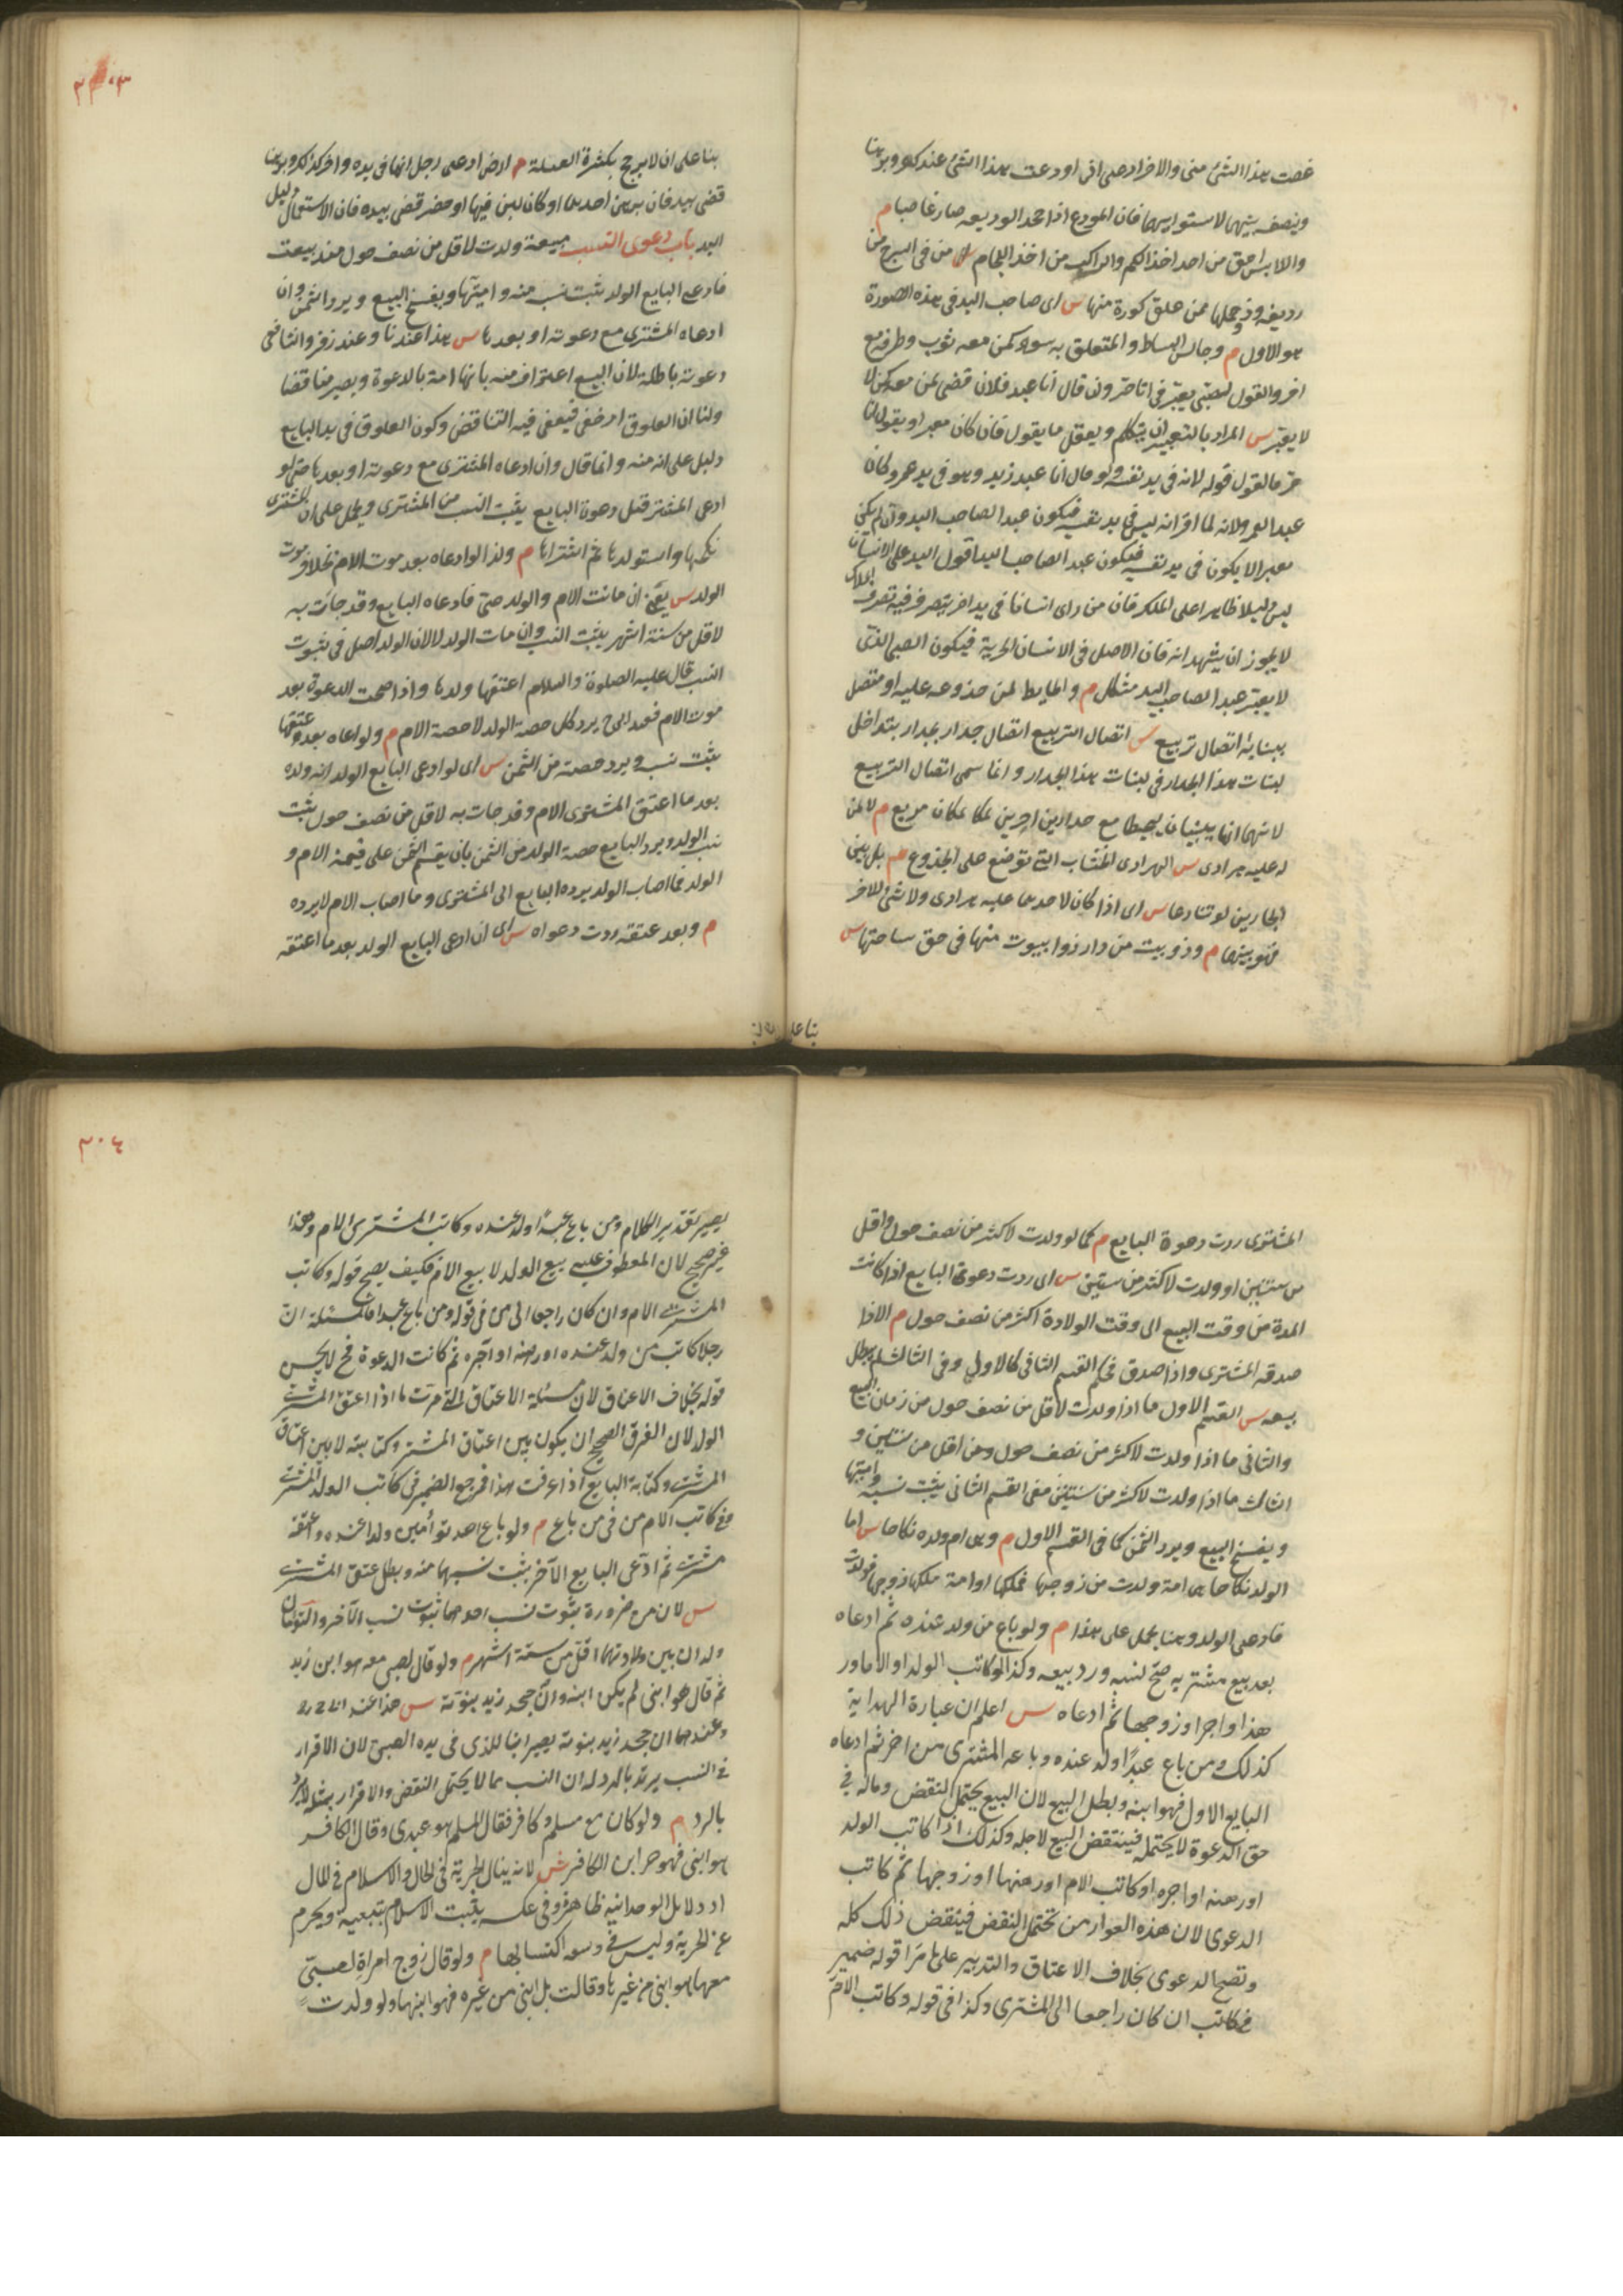 غصبت هذا الشئ منى والاخر ادعى انى اودعت هذا الشئ عندك وبرهنا
وينصف بينهما لاستوايهما فان المودع اذا جحد الوديعه صار غاصبا م
واللابس احق من احد اخذ الكم والراكب من اخذ اللجام و من فى السرج من
رديفه وذو حملها ممن علق كوزه منها س اى صاحب اليد فى هذه الصورة
هو الاول م وجالس البساط والمتعلق به سواء كمن معه ثوب وطرفه مع
اخر والقول لصبى يعبر فى انا حر وان قال انا عبد فلان قضى لمن معه كمن لا
لا يعبر س المراد بالتعبير ان يتكلم ويعقل ما يقول فان كان معبرا ويقول انا
حر فالقول قوله لانه فى يد نفسه ولو قال انا عبد زيد وهو فى يد عمرو كان
عبدا لعمرو لانه لما اقر انه ليس فى يد نفسه فيكون عبدا لصاحب اليد وان لم يكن
معبرا لا يكون فى يد نفسه فيكون عبدا لصاحب اليد اقول اليد على الانسان
ليس دليلا ظاهرا على الملك فان من راى انسانا فى يد اخر يتصرف فيه تصرف الملاك
لا يجوز ان يشهد انه فان الاصل فى الانسان الحرية فيكون الصبى الذى
لا يعبر عبدا لصاحب اليد مشكل م والحايط لمن جذوعه عليه او متصل
ببنايه اتصال تربيع س اتصال التربيع اتصال جدار بجدار بتداخل
لبنات هذا الجدار فى لبنات هذا الجدار وانما سمى اتصال التربيع
لانهما انما يبنيان ليحيطا مع جدارين اخرين بمكان مربع م لا لمن
له عليه هرادى س الهرادى الخشاب التى توضع على الجذوع م بل بين
الجارين لو تنازعا س اى اذا كان لاحدهما عليه هرادى ولا شئ للاخر
فهو بينهما م وذو بيت من دار كذوى بيوت منها فى حق ساحتها س
بنا على ان
٣٠٣
بنا على ان لا يرجح بكثرة العلة م ارض ادعى رجل انها فى يده واخر كذلك وبرهنا
قضى بيدهما فان برهن احدهما او كان لبن فيها او حفر قضى بيده فان الاستعمال دليل
اليد باب دعوى النسب مبيعة ولدت لاقل من نصف حول منذ بيعت
فادعى البايع الولد يثبت نسبه منه واميتها ويفسخ البيع ويرد الثمن وان
ادعاه المشترى مع دعوته او بعدها س هذا عندنا وعند زفر والشافعى
دعوته باطلة لان البيع اعتراف منه بانها امة بالدعوة ويصير مناقضا
ولنا ان العلوق امر خفى فيعفى فيه التناقض وكون العلوق فى يد البايع
دليل على انه منه وانما قال وان ادعاه المشترى مع دعوته او بعدها حتى لو
ادعى المشترى قبل دعوة البايع يثبت النسب من المشترى ويحمل على ان المشترى
نكحها واستولدها ثم اشتراها م وكذا لو ادعاه بعد موت الام بخلاف موت
الولد س يعنى ان ماتت الام والولد حى فادعاه البايع وقد جاءت به
لاقل من ستة اشهر يثبت النسب وان مات الولد لا لان الولد اصل فى ثبوت
النسب قال عليه الصلوة والسلام اعتقها ولدها واذا صحت الدعوة بعد
موت الام فعند ابى ح يرد كل حصة الولد لا حصة الام م ولو ادعاه بعد عتقها
يثبت نسبه ويرد حصته من الثمن س اى لو ادعى البايع الولد انه ولده
بعد ما اعتق المشترى الام وقد جاءت به لاقل من نصف حول يثبت
نسب الولد ويرد البايع حصة الولد من الثمن بان يقسم الثمن على قيمة الام و
الولد فما اصاب الولد يرده البايع الى المشترى وما اصاب الام لا يرده
م وبعد عتقه ردت دعواه س اى ان ادعى البايع الولد بعد ما اعتقه
المشترى ردت دعوة البايع م كما لو ولدت لاكثر من نصف حول واقل
من سنتين او ولدت لاكثر من سنتين س اى ردت دعوة البايع اذا كانت
المدة من وقت البيع الى وقت الولادة اكثر من نصف حول م الا اذا
صدقه المشترى واذا صدق فحكم القسم الثانى كالاول وفى الثالث لم يبطل
بيعه س القسم الاول ما اذا ولدت لاقل من نصف حول من زمان البيع
والثانى ما اذا ولدت لاكثر من نصف حول ومن اقل من سنتين و
الثالث ما اذا ولدت لاكثر من سنتين ففى القسم الثانى يثبت نسبه واميتها
ويفسخ البيع ويرد الثمن كما فى القسم الاول م وهى ام ولده نكاحا س اما
الولد نكاحا هى امة ولدت من زوجها فملكها او امة ملكها زوجها فولدت
فادعى الولد وهنا يحمل على هذا م ولو باع من ولد عنده ثم ادعاه
بعد بيع مشتريه صح نسبه ورد بيعه وكذا لو كاتب الولد او الام او ر
هذا واجر او زوجها ثم ادعاه س اعلم ان عبارة الهداية
كذلك ومن باع عبدًا ولد عنده وباعه المشترى من اخر ثم ادعاه
البايع الاول فهو ابنه وبطل البيع لان البيع يحتمل النقض وماله فى
حق الدعوة لا يحتمله فينتقض البيع لاجله وكذلك اذا كاتب الولد
او رهنه او اجره او كاتب الام او رهنها او زوجها ثم كاتب
الدعوى لان هذه العوارض تحتمل النقض فينقض ذلك كله
وتصح الدعوى بخلاف الاعتاق والتدبير على ما مرّ اقوله ضمير
فى كاتب ان كان راجعا الى المشترى وكذا فى قوله وكاتب الام
٣٠٤
يصير تقدير الكلام ومن باع عبدًا ولد عنده وكاتب المشترى الام وهذا
غير صحيح لان المعطوف عليه بيع الولد لا بيع الام فكيف يصح قوله وكاتب
المشترى الام وان كان راجعا الى من فى قوله ومن باع عبدا فالمسئلة ان
رجلا كاتب من ولد عنده او رهنه او آجره ثم كانت الدعوة فح لا يحسن
قوله بخلاف الاعتاق لان مسئلة الاعتاق التى مرت ما اذا اعتق المشترى
الولد لان الفرق الصحيح ان يكون بين اعتاق المشترى وكتابته لا بين اعتاق
المشترى وكتابة البايع اذا عرفت هذا فمرجع الضمير فى كاتب الولد المشترى
وفى كاتب الام من فى من باع م ولو باع احد توأمين ولدا عنده واعتقه
مشتريه ثم ادّعى البايع الآخر يثبت نسبهما منه وبطل عتق المشترى
س لان من ضرورة ثبوت نسب احدهما ثبوت نسب الآخر والتوأمان
ولدان بين ولادتهما اقل من ستة اشهر م ولو قال لصبى معه هو ابن زيد
ثم قال هو ابنى لم يكن ابنه وان جحد زيد بنوته س هذا عند ابى ح رح
وعندهما ان جحد زيد بنوته يصير ابنا للذى فى يده الصبى لان الاقرار
فى النسب يرتد بالرد له ان النسب مما لا يحتمل النقض والاقرار بمثله لا يرد
بالرد م ولو كان مع مسلم وكافر فقال المسلم هو عبدى وقال الكافر
هو ابنى فهو حر ابن الكافر ش لانه ينال الحرية فى الحال والاسلام فى المال
اذ دلايل الوحدانية ظاهرة وفى عكسه يثبت الاسلام بتبعية ويحرم
عن الحرية وليس فى وسعه اكتسابها م ولو قال زوج امراة لصبىّ
معها هو ابنى من غيرها وقالت بل ابنى من غيره فهو ابنهما ولو ولدت